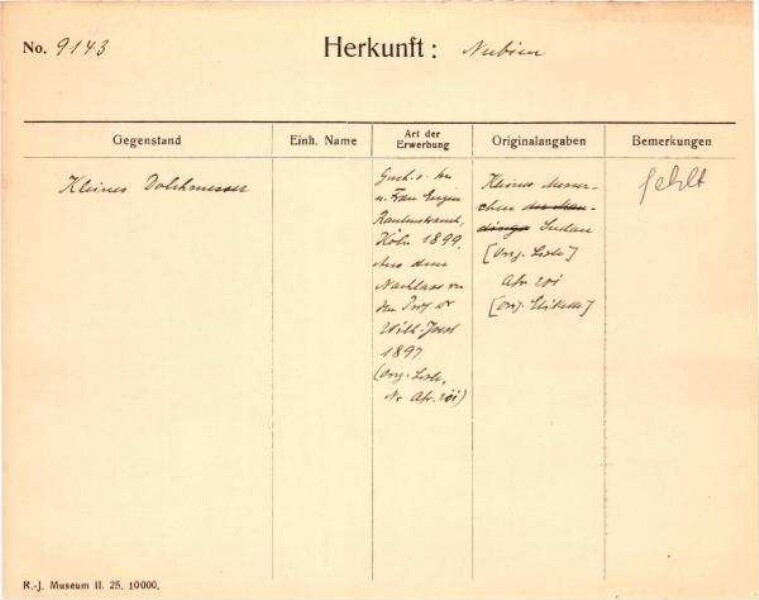 No. 9143 Herkunft: Nubien
Gegenstand Einh. Name Art der Erwerbung Originalangaben Bemerkungen
Kleines Dolchmesser
Gesch. v. Hrn
u. Frau Eugen
Rautenstrauch,
Köln 1899.
Aus dem
Nachlass von
dem Prof Dr
Wilh. Joest
1897
(Orig. Liste,
Nr Afr. 201)
Kleines Messer-
chen der Man-
dingo Sudan
[Orig. Liste]
Afr 201
[Orig. Etikette]
fehlt
R.-J. Museum II. 25. 10000.